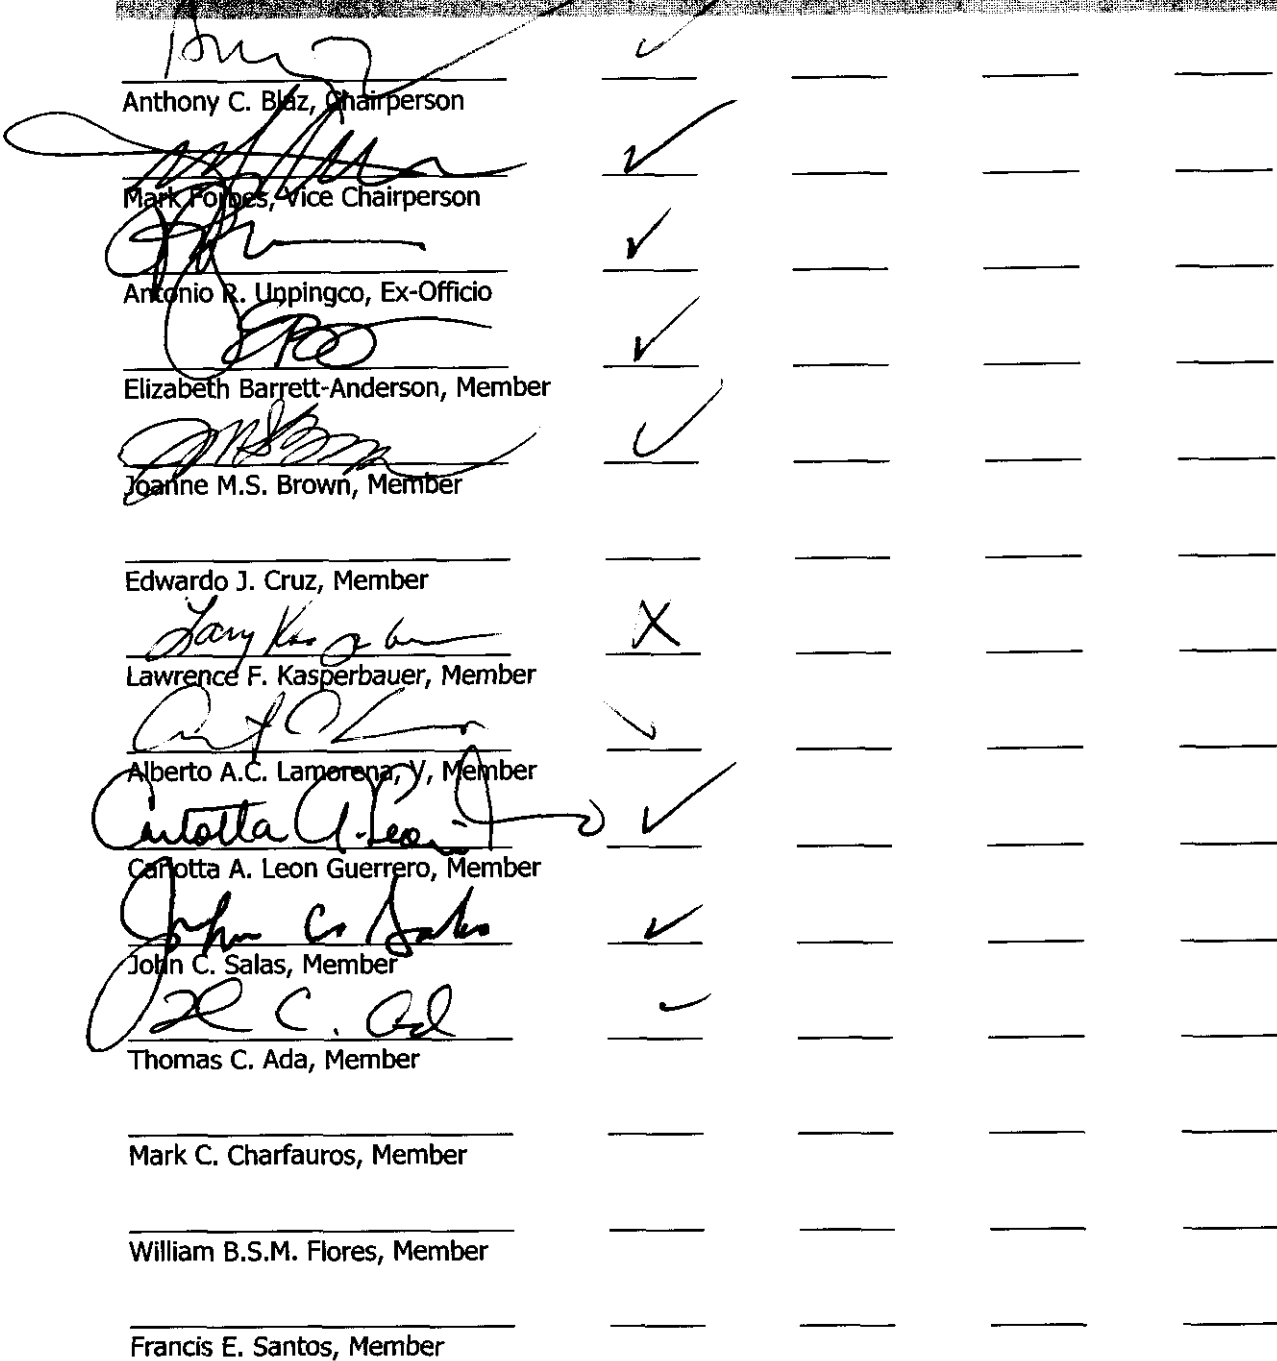 Anthony C. Blaz, Chairperson
Mark Forbes, Vice Chairperson
Antonio R. Unpingco, Ex-Officio
Elizabeth Barrett-Anderson, Member
Joanne M.S. Brown, Member
Edwardo J. Cruz, Member
Lawrence F. Kasperbauer, Member
Alberto A.C. Lamorena, V, Member
Carlotta A. Leon
Carlotta A. Leon Guerrero, Member
John C. Salas
John C. Salas, Member
Thomas C. Ada, Member
Mark C. Charfauros, Member
William B.S.M. Flores, Member
Francis E. Santos, Member